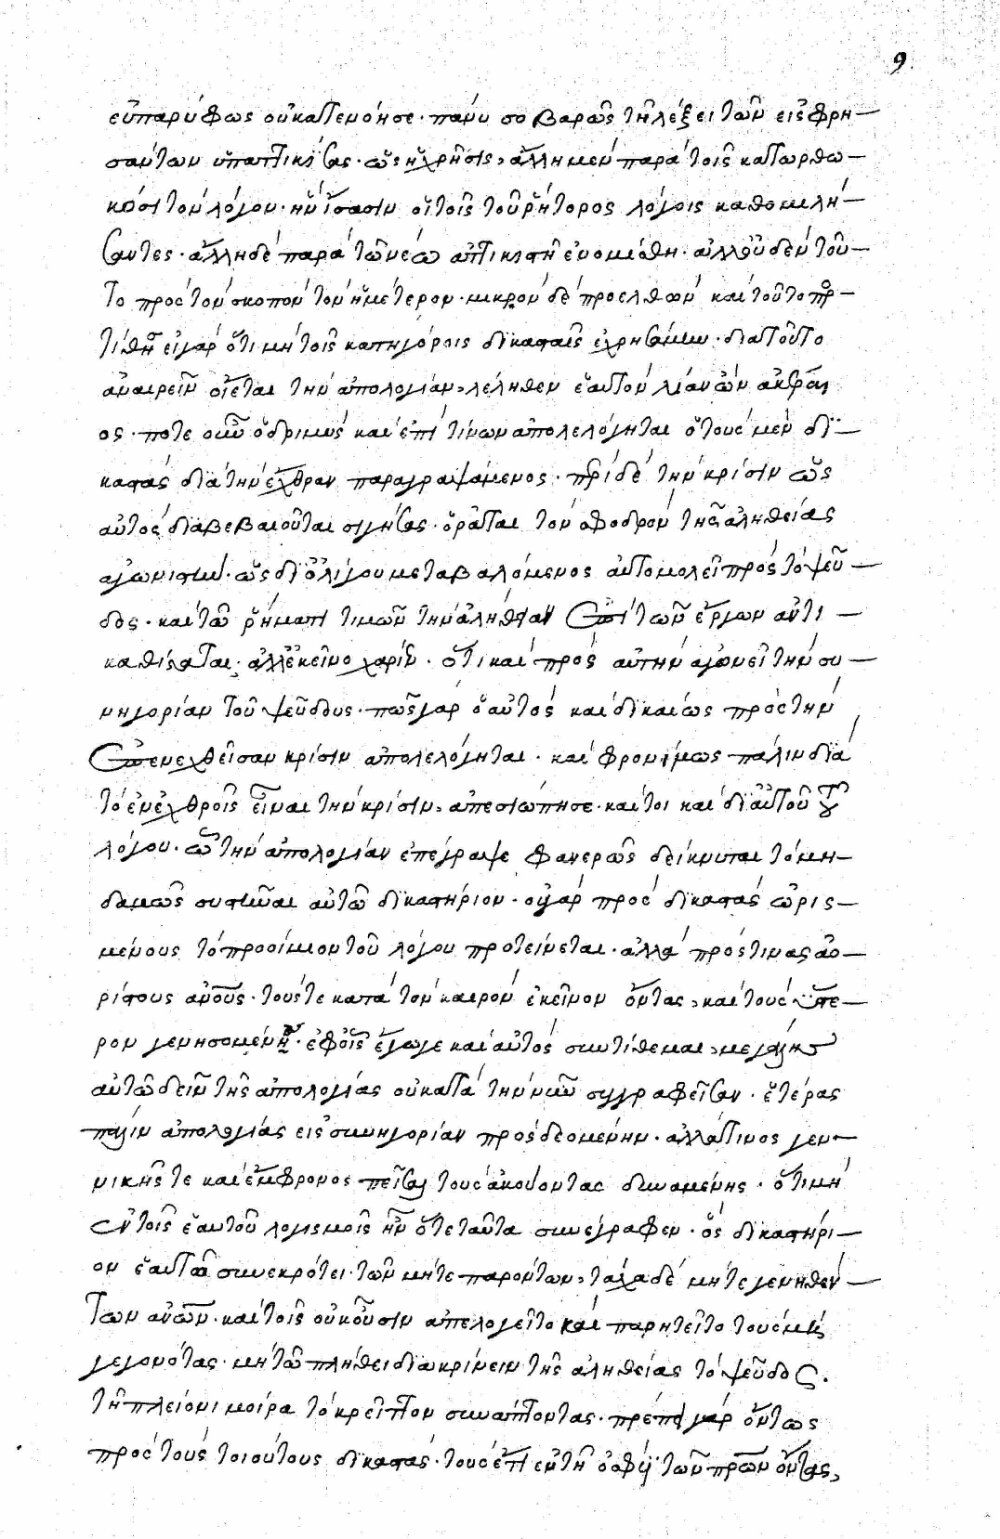 9
εὐπαρύφως οὐ κατενόησε· πάνυ σοβαρῶς τῇ λέξει τῶν εἰσφρη-
σάντων ὑπαντικήσας· ὡς ἡ χρῆσις, ἄλλη μὲν παρὰ τοῖς κατωρθω-
κόσι τὸν λόγον· ἣν ἴσασιν οἱ τοῖς τοῦ ῥήτορος λόγοις καθομιλή-
σαντες· ἄλλη δὲ παρὰ τῶ νέω ἀττικιστῆ ἐνομίσθη· ἀλλ' οὐδὲν τοῦ-
το πρὸς τὸν σκοπὸν τὸν ἡμέτερον· μικρὸν δὲ προελθὼν καὶ τοῦτο προσ-
τίθησι· εἰ γὰρ ὅτι μὴ τοῖς κατηγόροις δικασταῖς ἐχρησάμην· διὰ τοῦτο
ἀναιρεῖν οἴεται τὴν ἀπολογίαν, λέληθεν ἑαυτὸν λίαν ὢν
ος· ποτε οὖν ὁ δριμὺς καὶ ἐπὶ τίνων ἀπολελόγηται ὁ τοὺς μὲν δι-
καστὰς διὰ τὴν ἔχθραν παραγραψάμενος· περὶ δὲ τὴν κρίσιν ὡς
αὐτὸς διαβεβαιοῦται σιγήσας· ὁρᾶται τὸν σφοδρὸν τῆς ἀληθείας
ἀγωνιστὴν· ὡς δι' ὀλίγου μεταβαλόμενος αὐτομολεῖ πρὸς τὸ ψεῦ-
δος· καὶ τῶ ῥήματι τιμῶν τὴν ἀλήθειαν ἐπὶ τῶν ἔργων ἀντι-
καθίσταται· ἀλλ' ἐκεῖνο χαρίεν· ὅτι καὶ πρὸς αὐτὴν ἀγωνεῖ τὴν συ-
νηγορίαν τοῦ ψεύδους· πῶς γὰρ ὁ αὐτὸς καὶ δικαίως πρὸς τὴν
ἐπενεχθεῖσαν κρίσιν ἀπολελόγηται· καὶ φρονίμως πάλιν διὰ
τὸ ἐν ἐχθροῖς εἶναι τὴν κρίσιν, ἀπεσιώπησε· καίτοι καὶ δι' αὐτοῦ τοῦ
λόγου· ὧ τὴν ἀπολογίαν ἐπέγραψε φανερῶς δείκνυται τὸ μη-
δαμῶς συστῆναι αὐτῶ δικαστήριον· οὐ γὰρ πρὸς δικαστὰς ὡρισ-
μένους τὸ προοίμιον τοῦ λόγου προτείνεται· ἀλλὰ πρός τινας ἀο-
ρίστους ἀνους· τούς τε κατὰ τὸν καιρὸν ἐκεῖνον ὄντας, καὶ τοὺς ὕστε-
ρον γενησομένους· ἐφ' οἷς ἔγωγε καὶ αὐτὸς συντίθεμαι, μεγάλης
αὐτῶ δεῖν τῆς ἀπολογίας οὐ κατὰ τὴν νῦν συγγραφεῖσαν· ἑτέρας
πάλιν ἀπολογίας εἰς συνηγορίαν προσδεομένην· ἀλλά τινος γεν-
νικῆς τε καὶ ἔμφρονος πεῖσαι τοὺς ἀκούοντας δυναμένης· ὅτι μὴ
ἐν τοῖς ἑαυτοῦ λογισμοῖς ἦν ὅτε ταῦτα συνέγραφεν· ὃς δικαστήρι-
ον ἑαυτῶ συνεκρότει· τῶν μήτε παρόντων, τάχα δὲ μήτε γενηθέν-
των ἀνων· καὶ τοῖς οὐκ οὖσιν ἀπελογεῖτο καὶ παρητεῖτο τοὺς μὴ
γεγονότας· μὴ τῶ πλήθει διακρίνειν τῆς ἀληθείας τὸ ψεῦδος.
τῆ πλείονι μοίρα τὸ κρεῖττον συνάπτοντας· πρέπει γὰρ ὄντως
πρὸς τοὺς τοιούτους δικαστὰς· τοὺς ἔτι ἐν τῆ ὀσφύϊ τῶν πρων ὄντας,